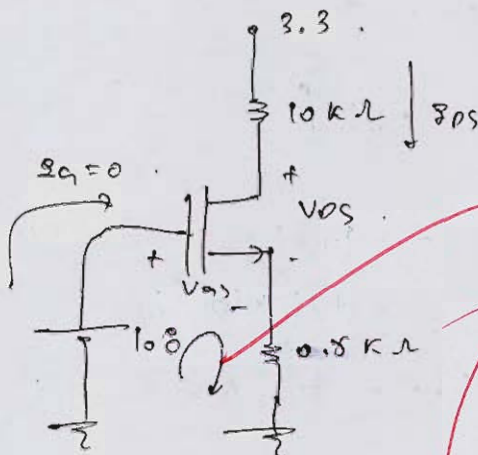 3.3
10 KΩ
IDS
IG = 0
+
VDS
+
-
VGS
-
0.8 KΩ